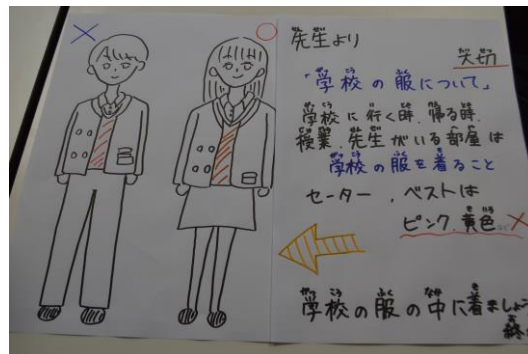 先生より
大切
「学校の服について」
学校に行く時、帰る時、
授業、先生がいる部屋は
学校の服を着ること
セーター、ベストは
ピンク、黄色など×
学校の服の中に着ましょう
終